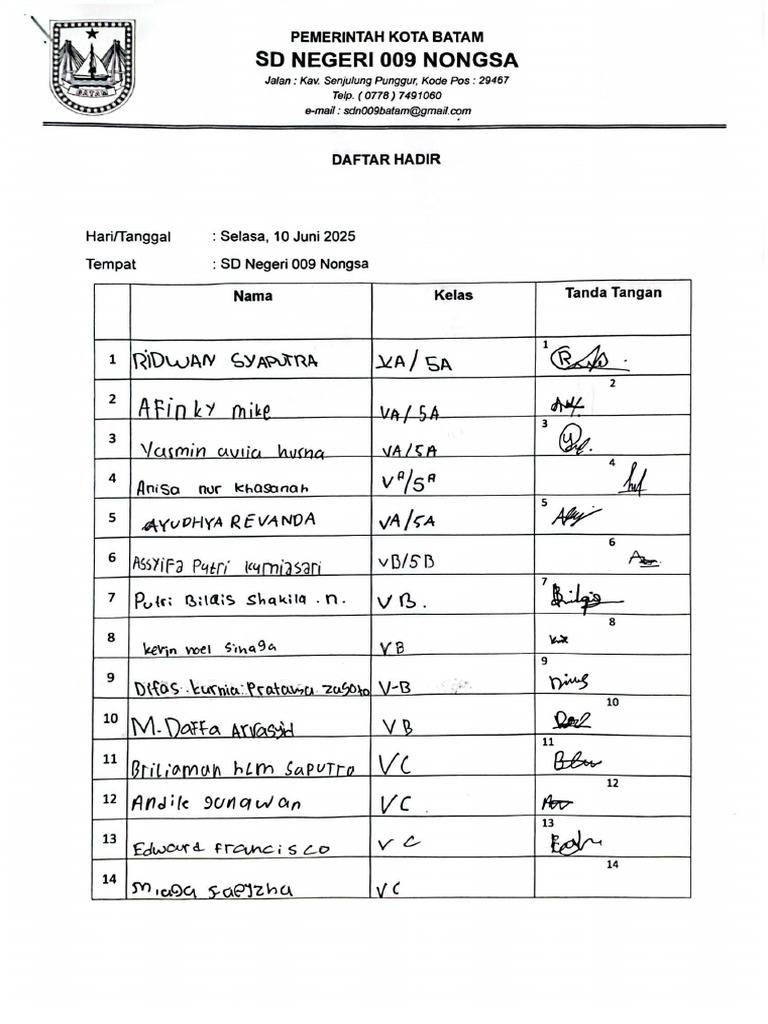 BATAM
PEMERINTAH KOTA BATAM
SD NEGERI 009 NONGSA
Jalan : Kav. Senjulung Punggur, Kode Pos : 29467
Telp. ( 0778 ) 7491060
e-mail : sdn009batam@gmail.com
DAFTAR HADIR
Hari/Tanggal : Selasa, 10 Juni 2025
Tempat : SD Negeri 009 Nongsa
Nama Kelas Tanda Tangan
1 RiDWAN SYAPUTRA VA/5A 1
2 AFinky mike VA/5A 2
3 Yasmin aulia husna VA/5A 3
4 Anisa nur khasanah VA/5A 4
5 AYUDHYA REVANDA VA/5A 5
6 Assyifa Putri kurniasari VB/5B 6
7 Putri Bilqis Shakila . n. VB. 7
8 noel sinaga VB 8
9 Difas kurnia V-B 9
10 M. Daffa VB 10
11 saputro VC 11
12 Andile gunawan VC 12
13 Edward francisco VC 13
14 VC 14